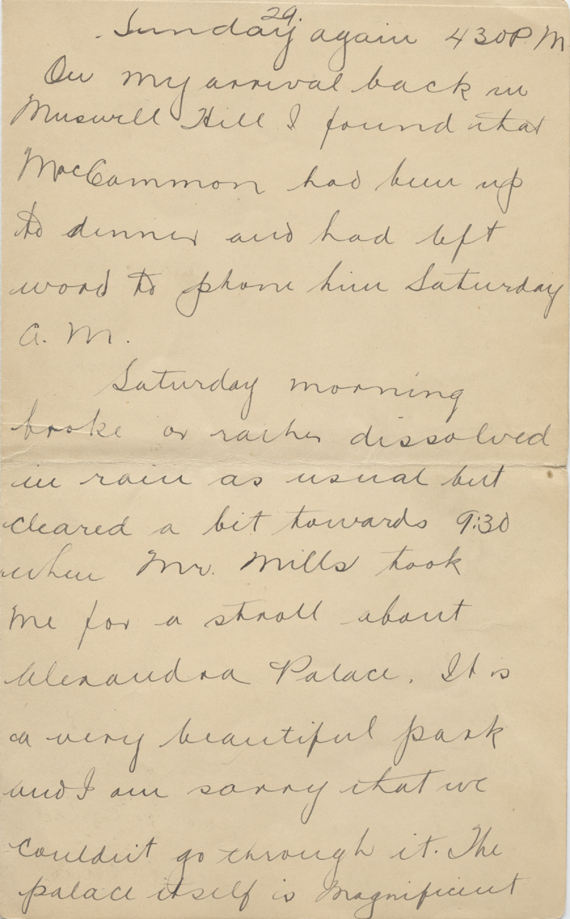 29.
Sunday again 430 P.M
On my arrival back in
Muswell Hill I found that
MacCammon had been up
to dinner and had left
word to phone him Saturday
A. M.
Saturday morning
broke or rather dissolved
in rain as usual but
cleared a bit towards 9:30
when Mr. Mills took
me for a stroll about
Alexandra Palace. It is
a very beautiful park
and I am sorry that we
couldn't go through it. The
palace itself is magnificent